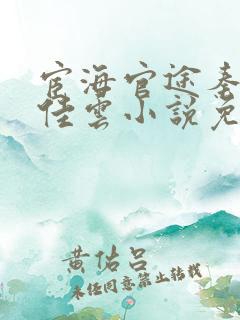 宦海官途秦
佳雲小說免
黄佑吕
未经同意禁止转载